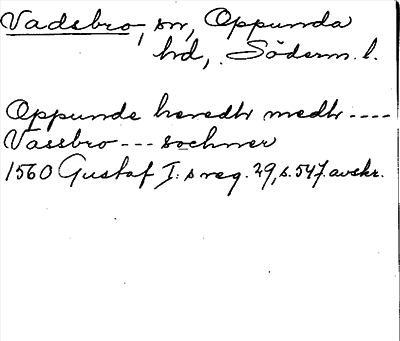 Vadsbro, sn, Oppunda
hd, Söderm. l.
Oppunde heredh medh ----
Vassbro --- sochner
1560 Gustaf I:s reg. 29, s. 547. avskr.